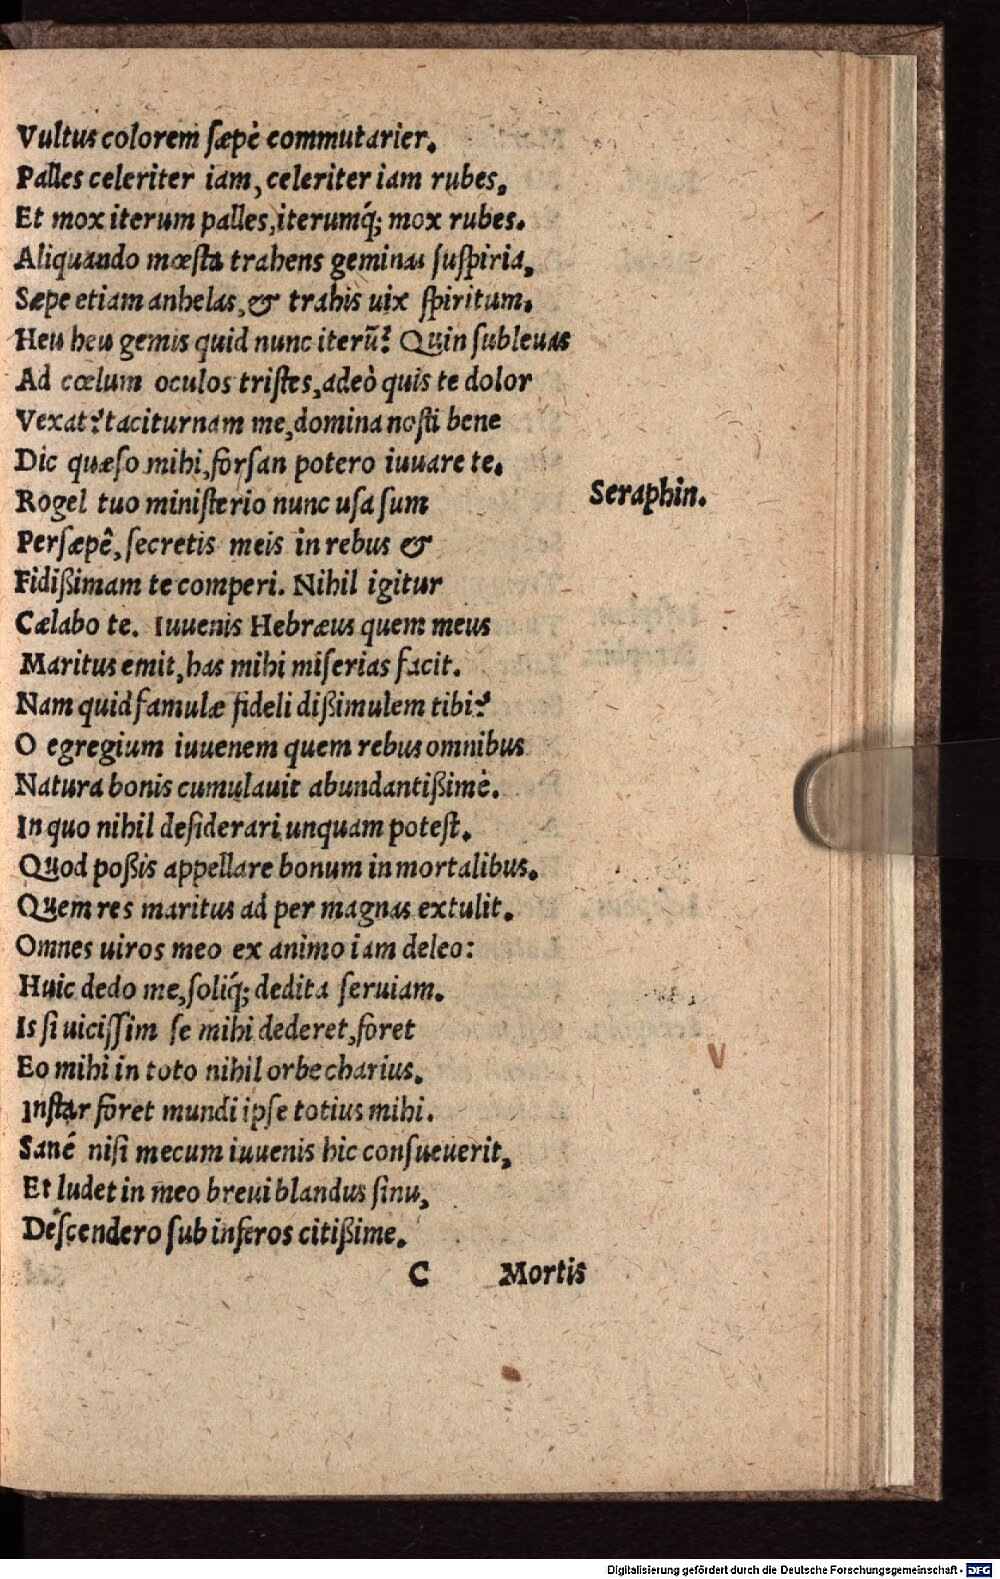 Vultus colorem ſæpè commutarier.
Palles celeriter iam, celeriter iam rubes,
Et mox iterum palles, iterumq́; mox rubes.
Aliquando mœſta trahens geminas ſuſpiria,
Sæpe etiam anhelas, & trahis uix ſpiritum.
Heu heu gemis quid nunc iterũ? Quin ſubleuas
Ad cœlum oculos triſtes, adeò quis te dolor
Vexat? taciturnam me, domina noſti bene
Dic quæſo mihi, forſan potero iuuare te.
Rogel tuo miniſterio nunc uſa ſum
Seraphin.
Perſæpê, ſecretis meis in rebus &
Fidißimam te comperi. Nihil igitur
Cælabo te. Iuuenis Hebræus quem meus
Maritus emit, has mihi miſerias facit.
Nam quid famulæ fideli dißimulem tibi?
O egregium iuuenem quem rebus omnibus
Natura bonis cumulauit abundantißimè.
In quo nihil deſiderari unquam poteſt.
Quod poßis appellare bonum in mortalibus.
Quem res maritus ad per magnas extulit.
Omnes uiros meo ex animo iam deleo:
Huic dedo me, ſoliq́; dedita ſeruiam.
Is ſi uiciſſim ſe mihi dederet, foret
Eo mihi in toto nihil orbe charius.
Inſtar foret mundi ipſe totius mihi.
Sanè niſi mecum iuuenis hic conſueuerit,
Et ludet in meo breui blandus ſinu,
Deſcendero ſub inferos citißime.
C Mortis
Digitalisierung gefördert durch die Deutsche Forschungsgemeinschaft - DFG